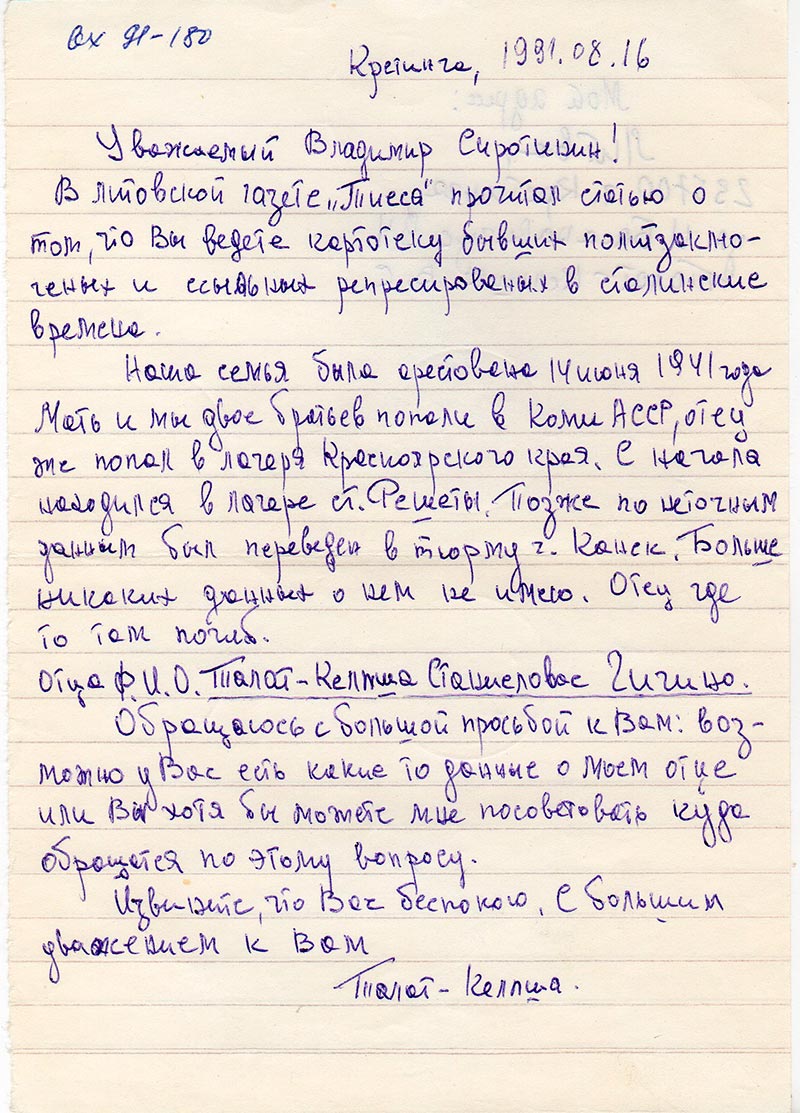 Вх 91-180
Кретинга, 1991.08.16
Уважаемый Владимир Сиротинин!
В литовской газете „Тиеса“ прочитал статью о
том, что Вы ведете картотеку бывших политзаклю-
ченых и ссыльных репресированых в сталинские
времена.
Наша семья была арестована 14 июня 1941 года
Мать и мы двое братьев попали в Коми АССР, отец
же попал в лагеря Красноярского края. С начала
находился в лагере ст. Решеты. Позже по неточным
данным был переведен в тюрму г. Канск. Больше
никаких данных о нем не имею. Отец где
то там погиб.
Отца Ф.И.О. Талат-Келпша Станисловас Чичино.
Обращаюсь с большой просьбой к Вам: воз-
можно у Вас есть какие то данные о моем отце
или Вы хотя бы можете мне посоветовать куда
обращатся по этому вопросу.
Извините, что Вас беспокою. С большим
уважением к Вам
Талат-Келпша.